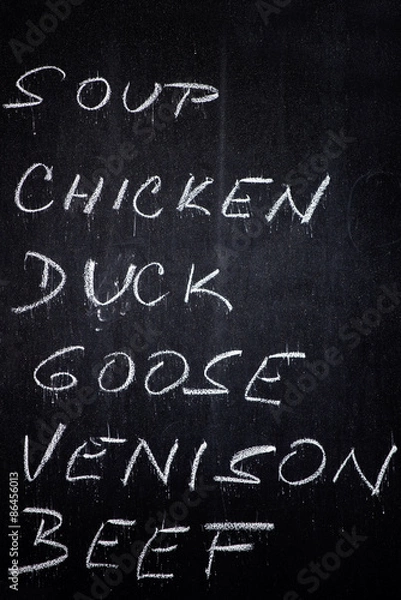 SOUP
CHICKEN
DUCK
GOOSE
VENISON
BEEF
Adobe Stock | #86456013